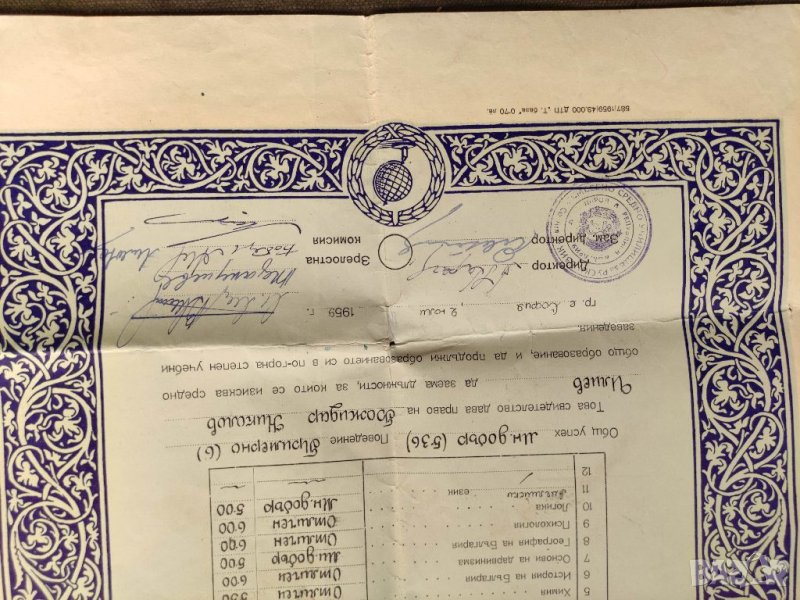 5 Химия 5.50
6 История на България Отличен 6.00
7 Основи на дарвинизма Мн. добър 5.00
8 География на България Отличен 6.00
9 Психология Отличен 6.00
10 Логика Мн. добър 5.00
11 Английски език
12
Общ успех Мн. добър (5.36) Поведение Примерно (6)
Това свидетелство дава право на Божидар Николов
Илиев да заема длъжности, за които се изисква средно
общо образование, и да продължи образованието си в по-горна степен учебни
заведения.
гр. с. София 2 юли 1959 г.
Директор
Зам. директор
Зрелостна
комисия
587/1959/49.000 ДТП „Т. 0·70 лв.